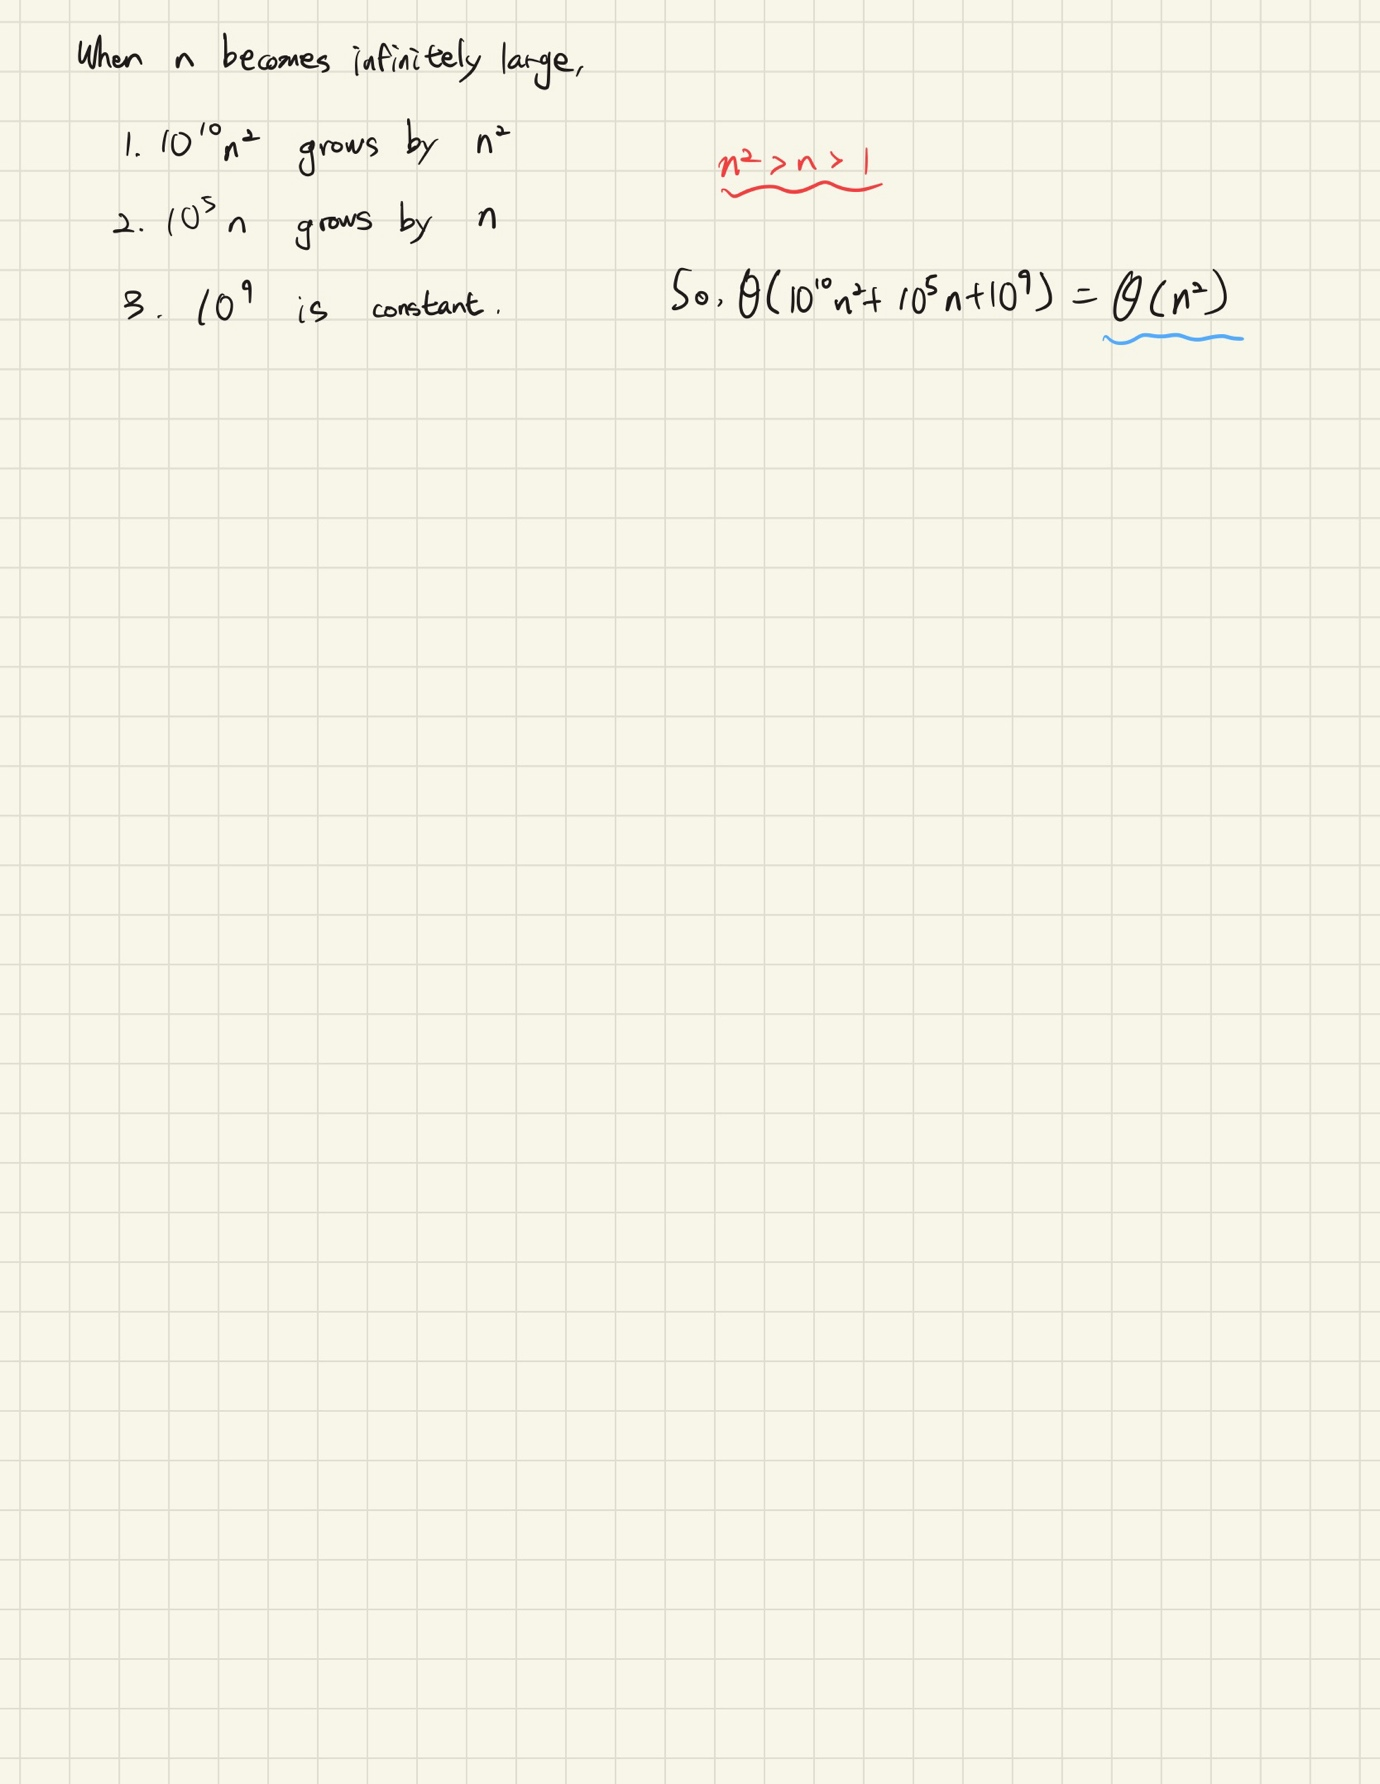 When n becomes infinitely large,
1. 10¹⁰n² grows by n²
2. 10⁵n grows by n
3. 10⁹ is constant.
n² > n > 1
So, θ(10¹⁰n² + 10⁵n + 10⁹) = θ(n²)